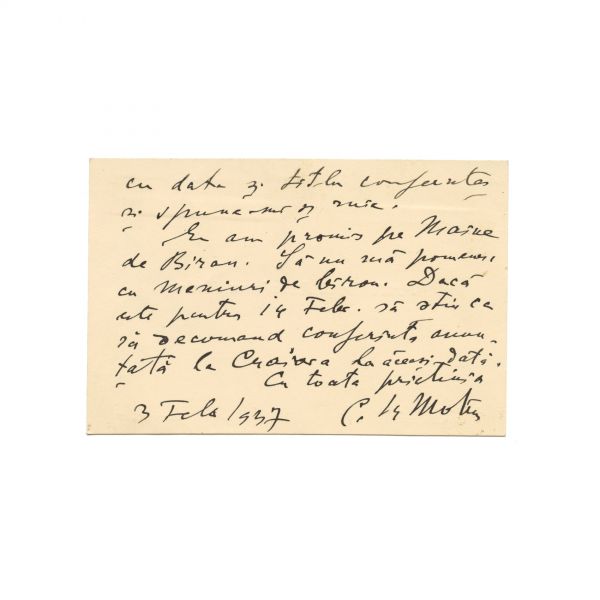 cu data și titlu conferinței
și spune-mi și mie.
Eu am promis pe Maine
de Biran. Să nu mă pomenesc
cu Meniuri de biron. Dacă
este pentru 14 Febr. să știu ca
să decomand conferința anun-
țată la Craiova la aceeași dată.
Cu toata prietenia
3 Feb 1937 C.